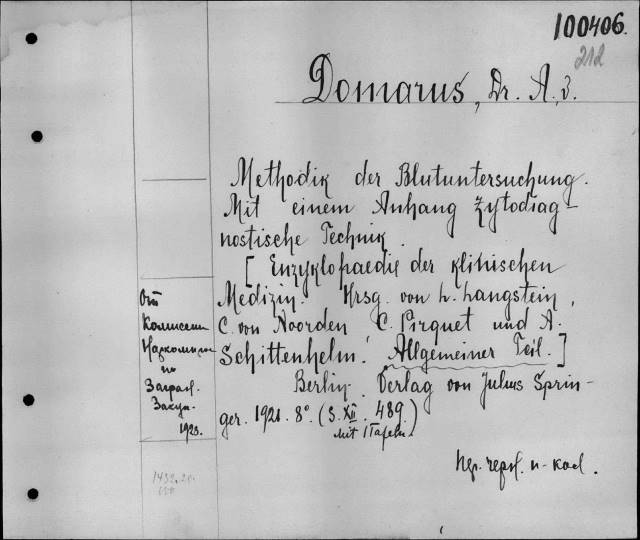 100406.
212
Domarus, Dr. A. v.
Methodik der Blutuntersuchung.
Mit einem Anhang Zytodiag-
nostische Technik.
[Enzyklopaedie der klinischen
Medizin. Hrsg. von L. Langstein,
C. von Noorden C. Pirquet und A.
Schittenhelm. Allgemeiner Teil.]
Berlin. Verlag von Julius Sprin-
ger. 1921. 8°. (S. XII. 489)
mit 1 Tafeln.
От
Комиссии
Наркомпро
по
Заграл.
Закуп.
1923.